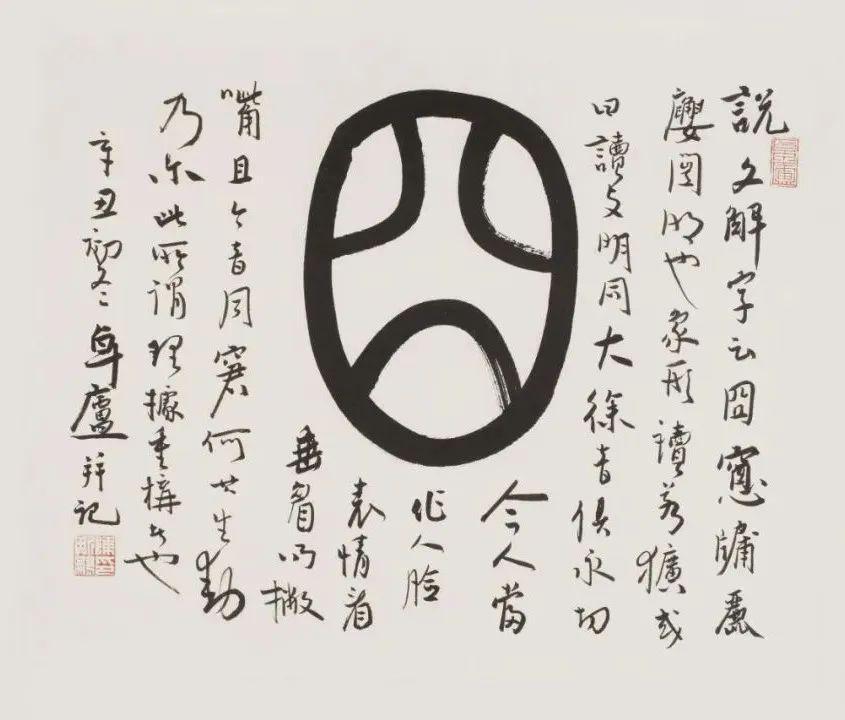 説文解字云囧窻牖麗
廔闓明也象形讀若獷或
曰讀與明同大徐音俱永切
囧
今人當
作人臉
表情着
垂眉而撇
嘴且今音同窘何其生動
乃尔此所謂理據重構者也
辛丑初冬卓廬并記
陳印斯鵬